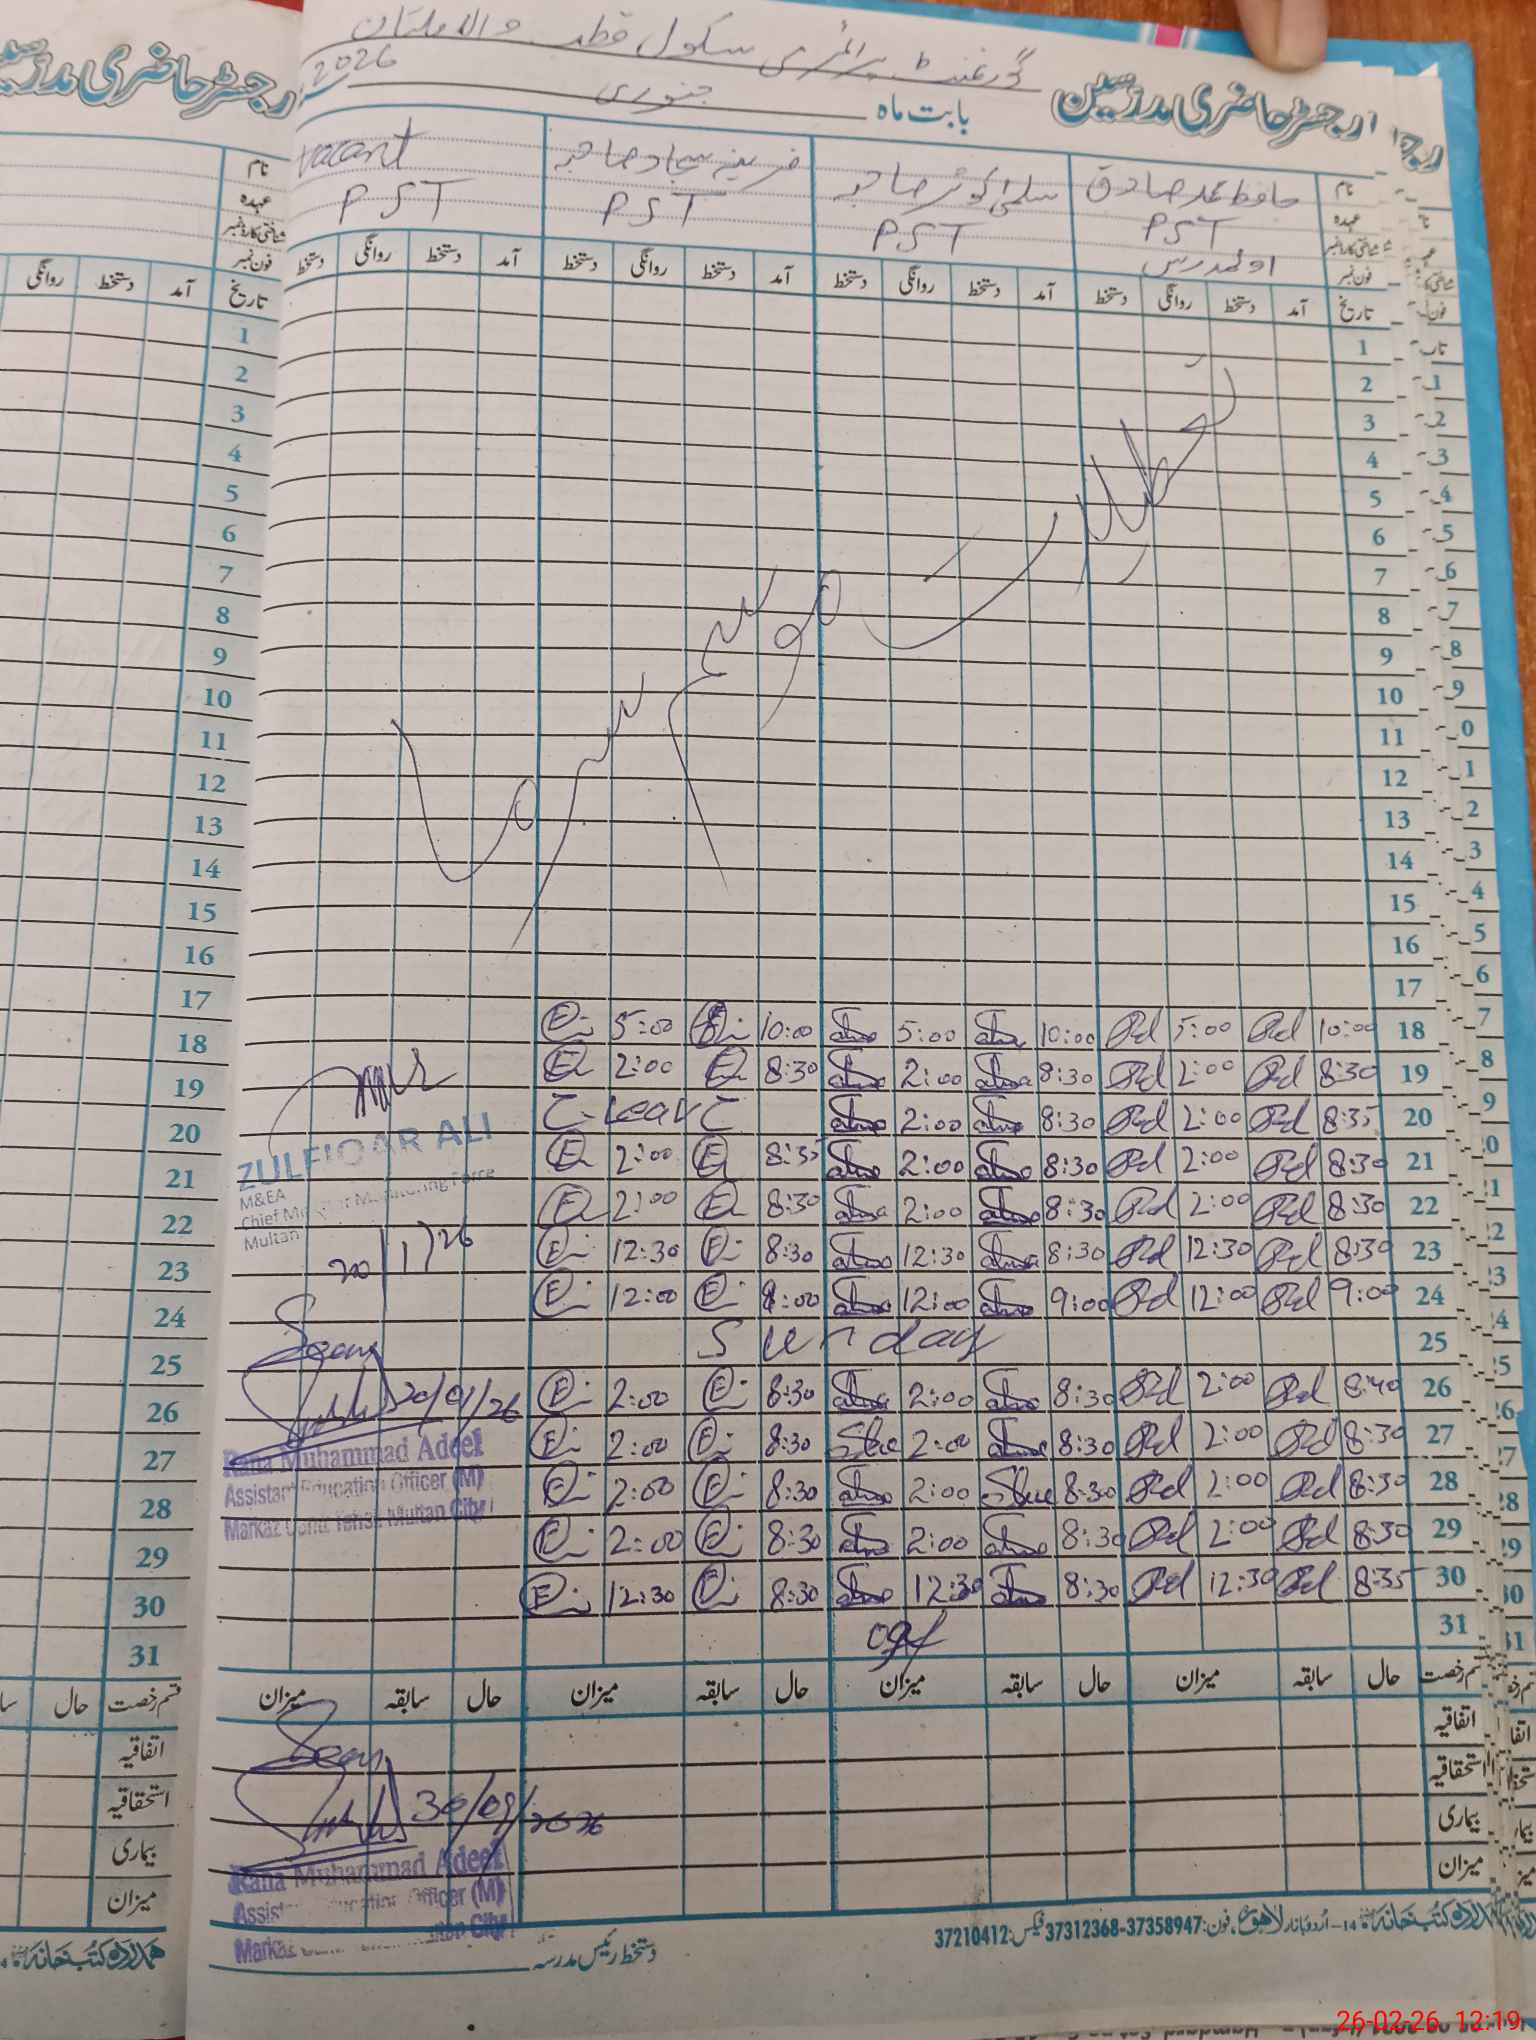 گورنمنٹ پرائمری سکول قطب والا ملتان
رجسٹر حاضری مدرسین بابت ماہ جنوری 2026
نام حافظ محمد صادق سلمیٰ کوثر صاحبہ فرینہ سجاد صاحبہ vacant
عہدہ PST PST PST PST
شناختی کارڈ نمبر
فون نمبر اول مدرس
تاریخ آمد دستخط روانگی دستخط آمد دستخط روانگی دستخط آمد دستخط روانگی دستخط آمد دستخط روانگی دستخط
1
2
3
4
5
6
7
8
9
10
11
12
13
14
15
16
17
تعطیلات موسم سرما
18 10:00 5:00 10:00 5:00 10:00 5:00
19 8:30 2:00 8:30 2:00 8:30 2:00
20 8:35 2:00 8:30 2:00 C-Leave
21 8:30 2:00 8:30 2:00 8:35 2:00
22 8:30 2:00 8:30 2:00 8:30 2:00
23 8:30 12:30 8:30 12:30 8:30 12:30
24 9:00 12:00 9:00 12:00 9:00 12:00
25 Sunday
26 8:40 2:00 8:30 2:00 8:30 2:00
27 8:30 2:00 8:30 2:00 8:30 2:00
28 8:30 2:00 8:30 2:00 8:30 2:00
29 8:30 2:00 8:30 2:00 8:30 2:00
30 8:35 12:30 8:30 12:30 8:30 12:30
31 off
ZULFIQAR ALI
M&EA
Chief Minister Monitoring Force
Multan
20/1/26
Seen
30/01/26
Rana Muhammad Adeel
Assistant Education Officer (M)
Markaz Tehsil Multan City
قسم رخصت حال سابقہ میزان حال سابقہ میزان حال سابقہ میزان حال سابقہ میزان
اتفاقیہ
استحقاقیہ
بیماری
میزان
Seen
30/01/2026
Rana Muhammad Adeel
Assistant Education Officer (M)
دستخط رئیس مدرسہ
ہمدرد کتب خانہ 14-اردو بازار لاہور، فون: 37358947-37312368 فیکس: 37210412
رجسٹر حاضری مدرسین
نام
عہدہ
شناختی کارڈ نمبر
فون نمبر
تاریخ آمد دستخط روانگی
1
2
3
4
5
6
7
8
9
10
11
12
13
14
15
16
17
18
19
20
21
22
23
24
25
26
27
28
29
30
31
قسم رخصت حال
اتفاقیہ
استحقاقیہ
بیماری
میزان
ہمدرد کتب خانہ
26-02-26 12:19